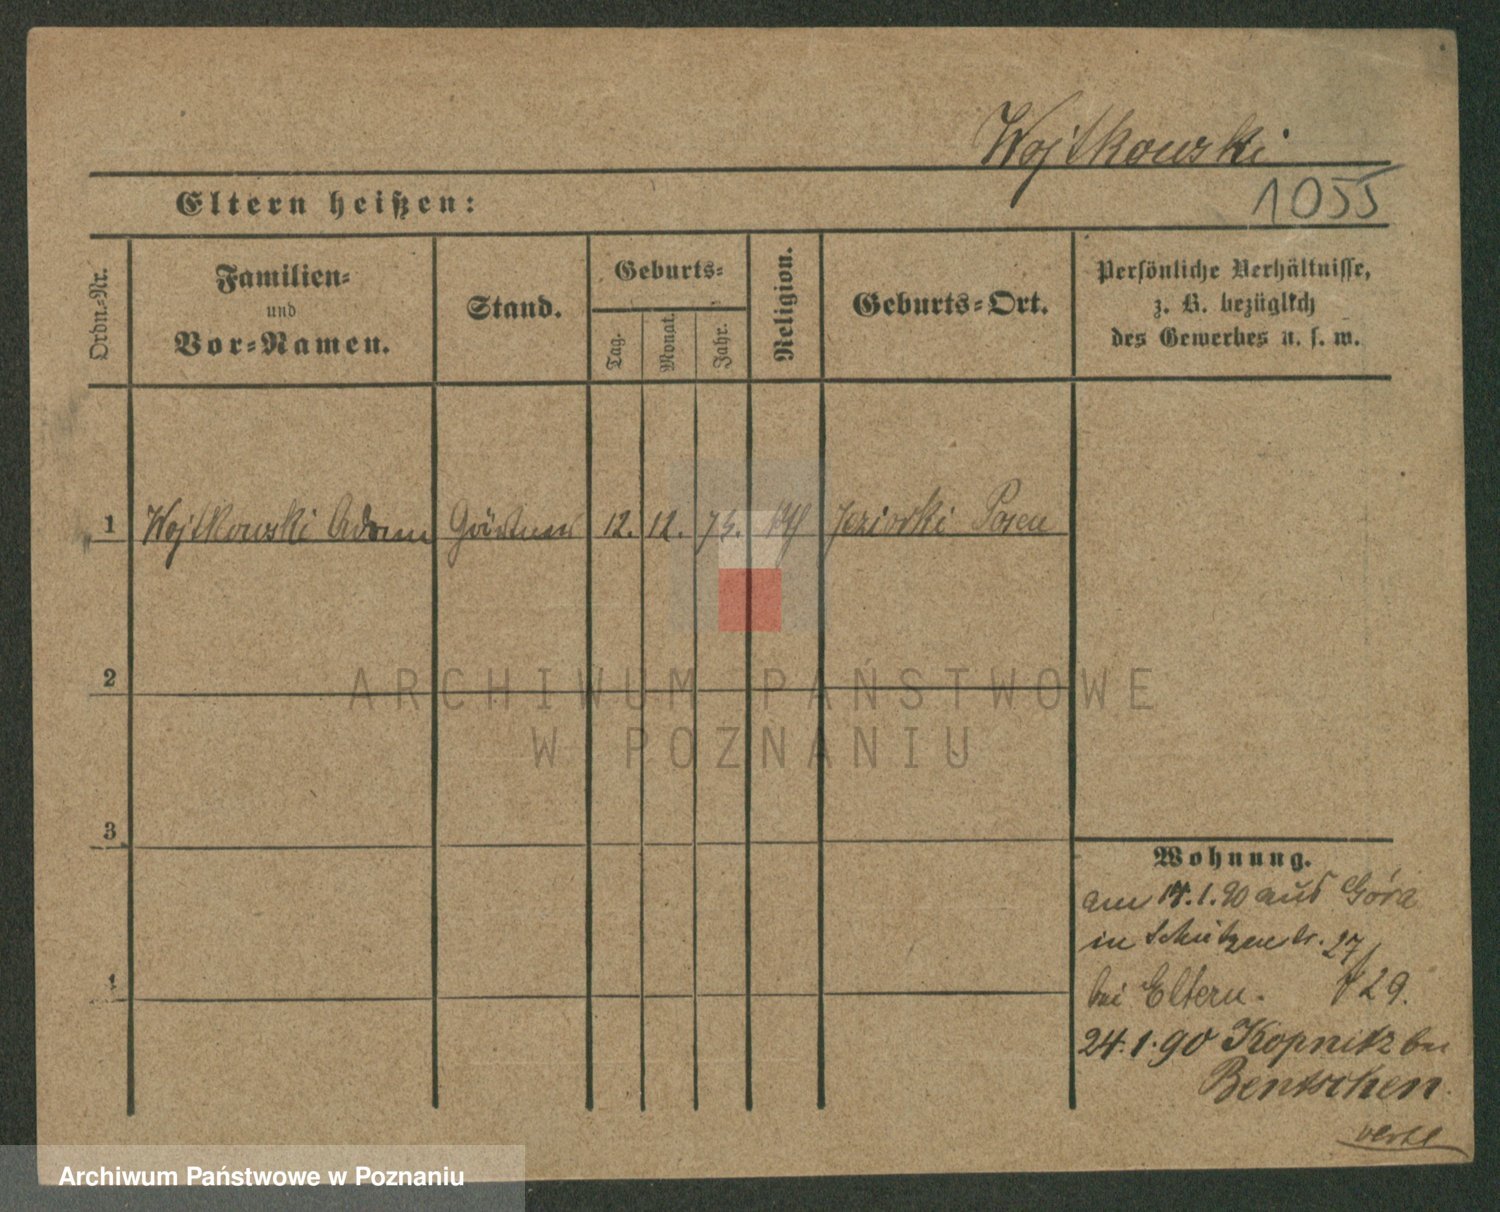 Wojtkowski
1055
Eltern heißen:
Ordn.-Nr.
Familien-
und
Vor-Namen.
Stand.
Geburts-
Tag.
Monat.
Jahr.
Religion.
Geburts-Ort.
Persönliche Verhältnisse,
z. B. bezüglich
des Gewerbes u. s. w.
1 Wojtkowski Adam Gärtner 12. 12. 73. Jeziorki Posen
2
3
4
Wohnung.
am 17.1.90 aus Góra
in Schützenstr. 27/
bei Eltern. 29.
24.1.90 Kopnitz bei
Bentschen.
ARCHIWUM PAŃSTWOWE
W POZNANIU
Archiwum Państwowe w Poznaniu